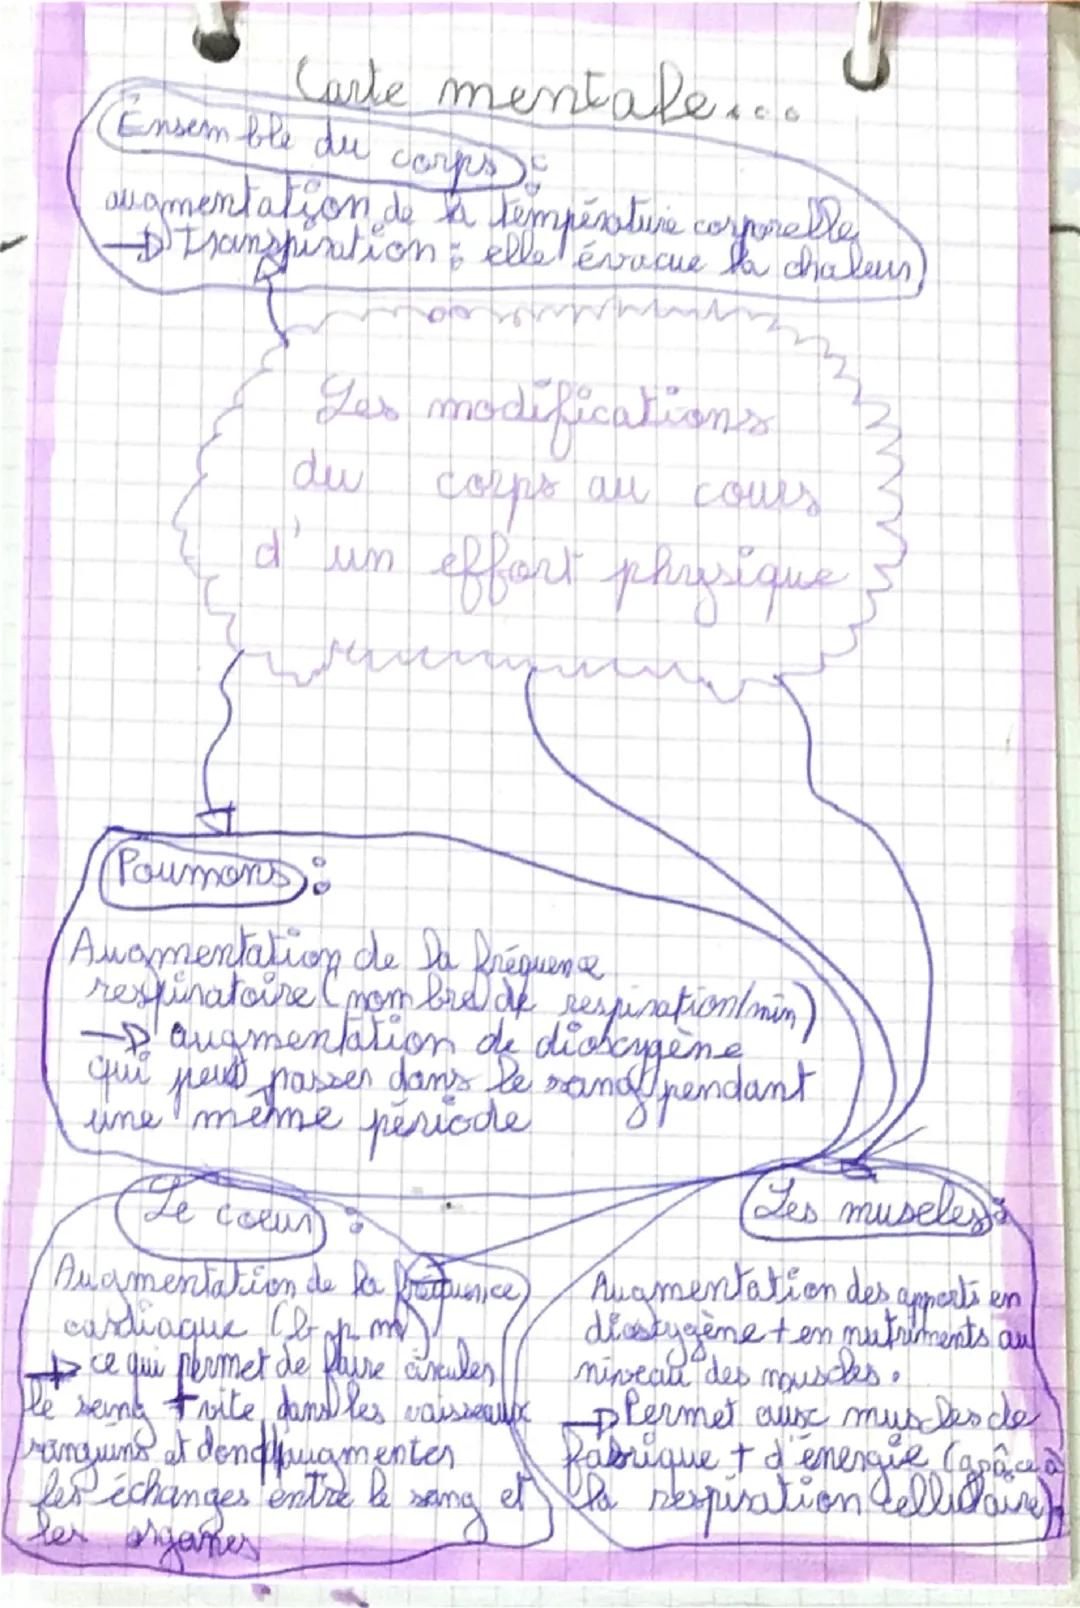 Carte mentale...
Ensemble du corps :
augmentation de la température corporelle
→ transpiration : elle évacue la chaleur
Les modifications
du corps au cours
d'un effort physique
Poumons :
Augmentation de la fréquence
respiratoire (nombre de respiration/min)
→ augmentation de dioxygène
qui peut passer dans le sang pendant
une même période
Le coeur :
Augmentation de la fréquence
cardiaque (b.p.m)
→ ce qui permet de faire circuler
le sang + vite dans les vaisseaux
sanguins et donc augmenter
les échanges entre le sang et
les organes
Les muscles :
Augmentation des apports en
dioxygène + en nutriments au
niveau des muscles.
→ Permet aux muscles de
fabrique + d'énergie (grâce à
la respiration cellulaire)